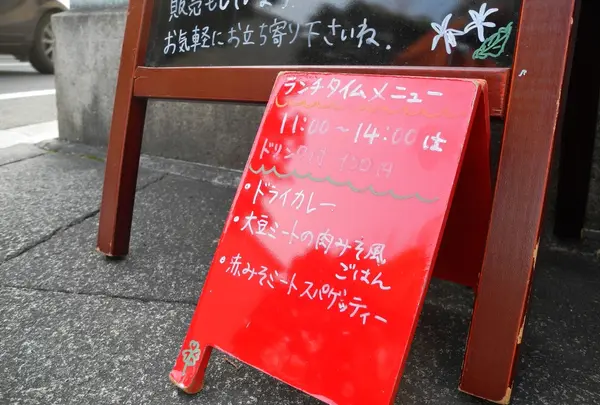 販売もしています。
お気軽にお立ち寄り下さいね.
ランチタイムメニュー
11:00〜14:00は
ドリンク
・ドライカレー
・大豆ミートの肉みそ風
ごはん
・赤みそミートスパゲッティー